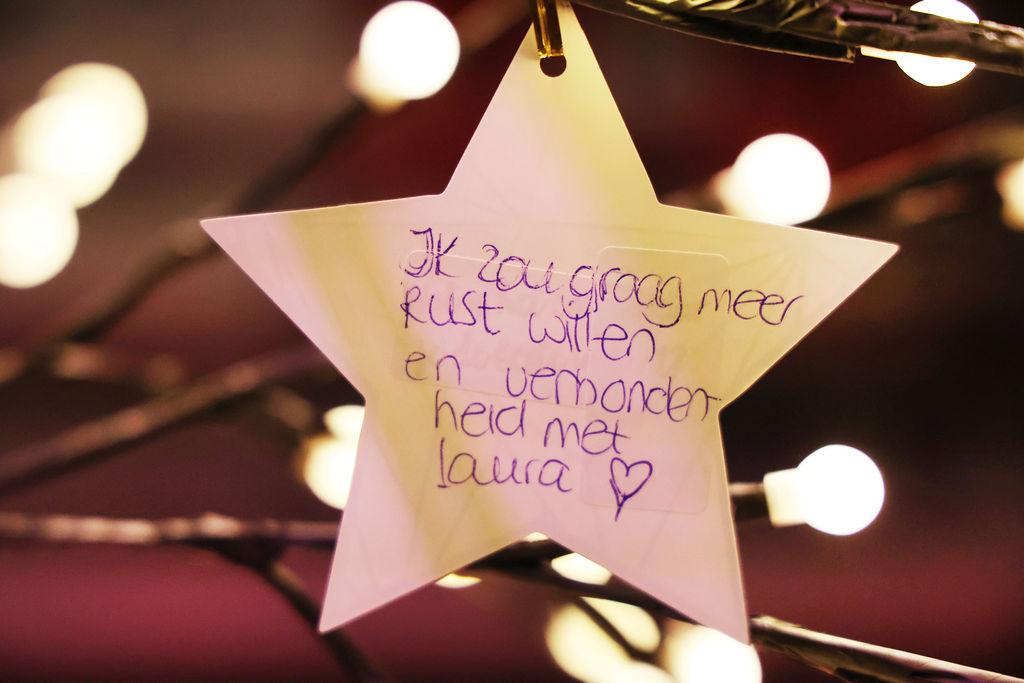 Ik zou graag meer
Rust willen
en verbonden
heid met
laura ♡